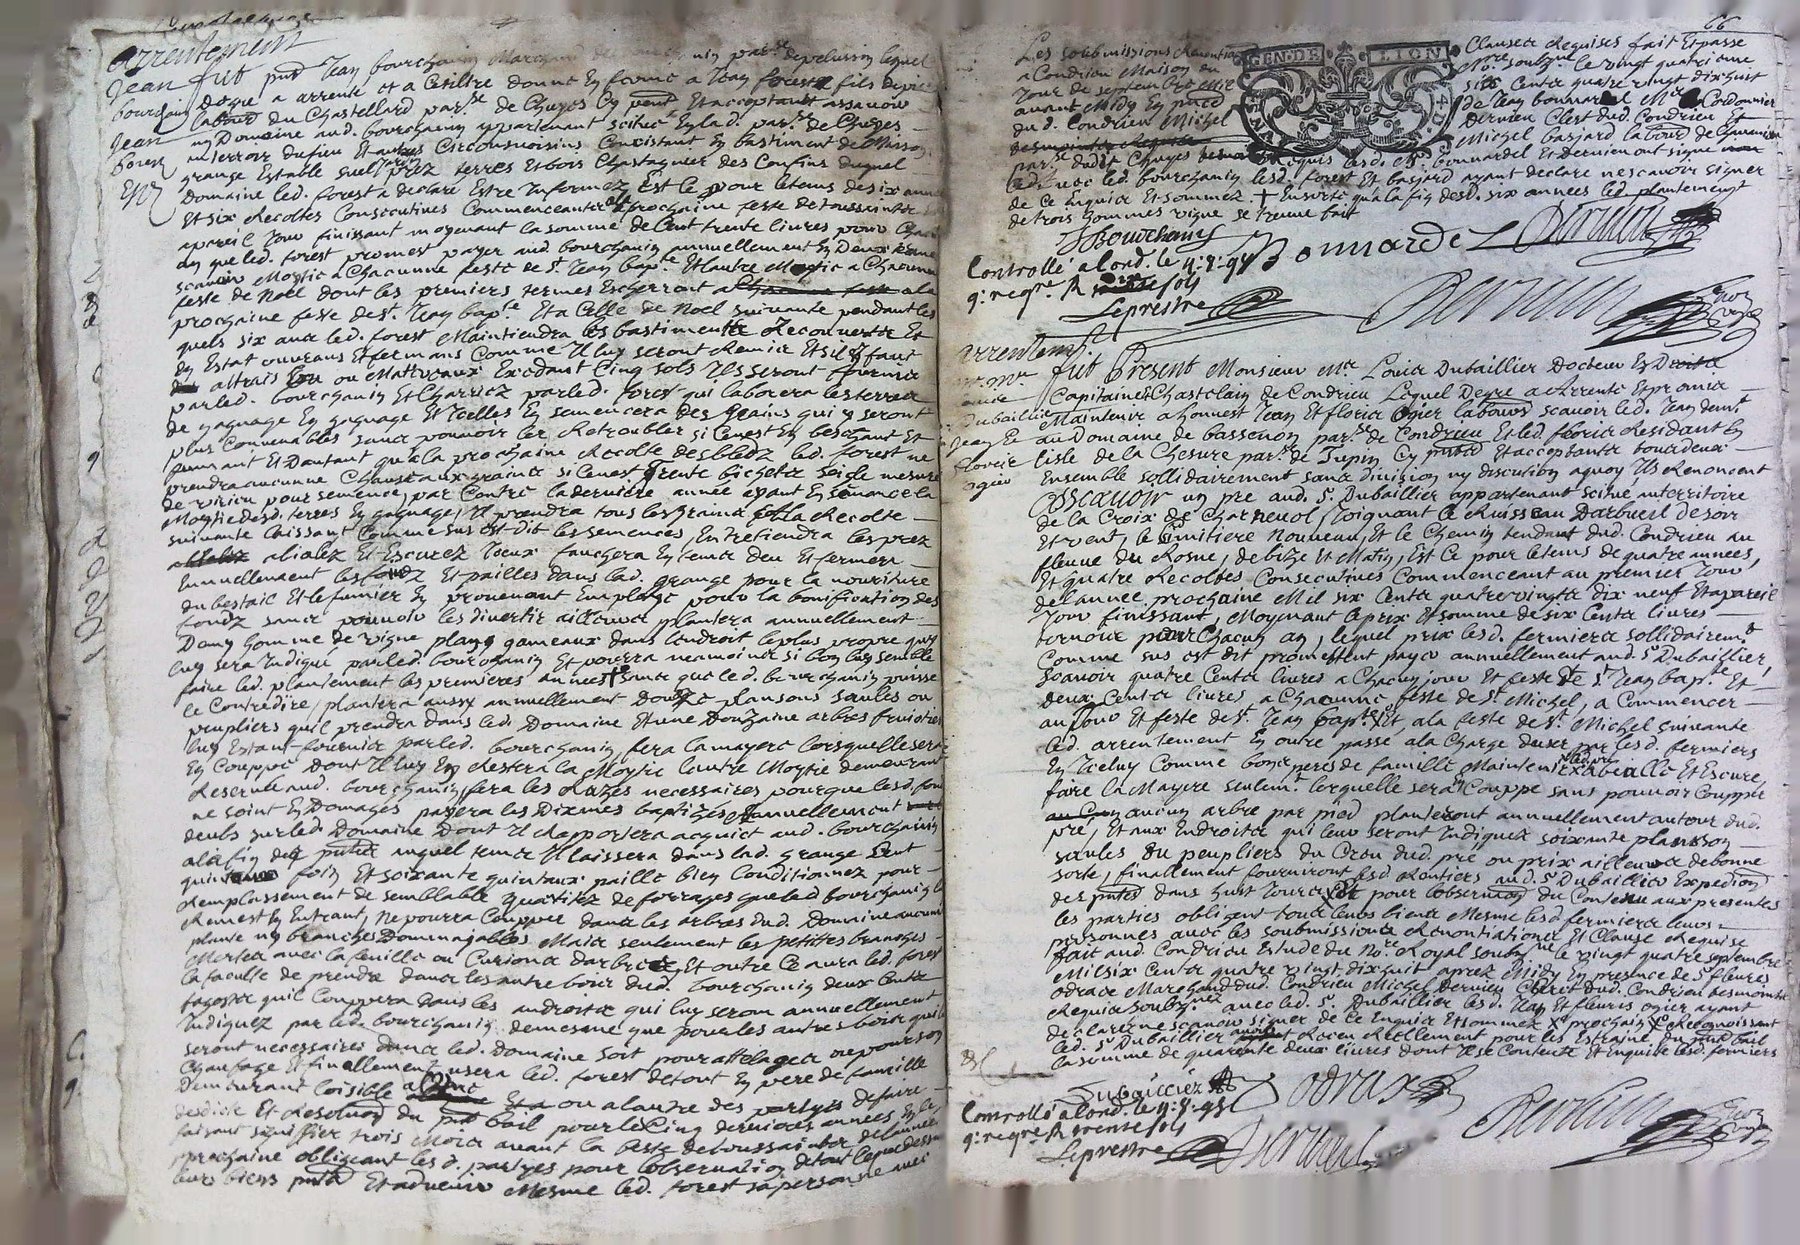 arrentement
Jean
bourchanin
Jean
forest
fut pnt Jean bourchanin Marchand par.se de pelussin lequel
degre a arrenté et a Ce tiltre donne En ferme a Jean forest fils de
labour du Chastellard par.se de Chuyes Cy pnt Et acceptant assavoir
un Domaine aud. bourchanin appartenant scitué En lad. par.se de Chuyes
au terroir du fieu Et autres Circonvoisins Consistant En bastiment de Maison
grange Estable prez terres Et bois Chastagnier des Confins duquel
Domaine led. forest a declaré Estre Informez Est Ce pour le tems de six années
Et six Recoltes Consecutives Commenceant a la prochaine feste de toussaintz
apareil Jour finissant moyenant la somme de Cent trente livres pour Chacun
an que led. forest promet payer aud. bourchanin annuellement En Deux termes
scavoir Moytie a Chacunne feste de St. Jean bap.te Et lautre Moytie a Chacunne
feste de Noel dont les premiers termes Escherront a la
prochaine feste de St. Jean bap.te Et a Celle de Noel suivante pendant les
quels six ans led. forest Maintiendra les bastiments Recouverts Et
En Estat ouvrans Et fermans Comme Il luy seront Remis Et sil y faut
attrais ou Mattereaux Excedant Cinq sols Ils seront fournis
par led. bourchanin Et Charriez par led. forest qui labourera les terres
de gagnage En gagnage Et Icelles En semencera des grains qui y seront
plus Convenables sans pouvoir les Retroubler si Cenest En
fumant Et Dautant qu'a la prochaine Recolte des bledz led. forest ne
prendra aucunne Chause aux grains si Cenest trente bichets seigle mesure
de virieu pour semence, par Contre la derniere année ayant En semance la
Moytie desd. terres En gagnage, Il prendra tous les grains a la Recolte
suivante laissant Comme sus est dit les semences, Entretiendra les prez
alialez Et Escurez Iceux fauchera En tems deu Et fermera
annuellement les foins Et pailles dans lad. grange pour la nouriture
du bestail Et le fumier En provenant Employé pour la bonification des
fondz sans pouvoir les divertir ailleurs plantera annuellement
Demy homme de vigne plans gameaux dans landroit le plus propre qui
luy sera Indiqué par led. bourchanin Et pourra neamoins si bon luy semble
faire led. plantement les premieres années + sans que led. bourchanin puisse
le Contredire, plantera aussy annuellement Douze plansons saules ou
peupliers quil prendra dans led. Domaine Et une Douzaine arbres fruictiers
luy Estant fournis par led. bourchanin, fera la mayere lorsquelle sera
En Couppe Dont Il luy En Restera la Moytie lautre Moytie demeurant
Reservé aud. bourchanin, fera les Razes necessaires pour que lesd. fonds
ne soint Endomagés payera les Dixmes annuellement
deubs sur led. Domaine Dont Il Rapportera acquict aud. bourchanin
a la fin des pntes auquel tems Il laissera dans lad. grange Cent
quintaux foin Et soixante quintaux paille bien Conditionnez pour
Remplassement de semblable quantitez de forrages que led bourchanin luy
Remest En Entrant, Ne pourra Coupper dans les arbres dud. Domaine aucune
plante ny branches Dommagables Mais seulement les petittes branches
Mortes avec la feuille ou Curions darbres, Et outre Ce aura led. forest
la faculté de prendre dans les autres bois dud. bourchanin deux Cents
fagots quil Couppera dans les androits qui luy seront annuellement
Indiquez par led. bourchanin demesme que pour les autres bois qui luy
seront necessaires dans led. Domaine soit pour attelages ou pour son
Chaufage Et finallement usera led. forest de tout En pere de famille
Demeurant loisible a l'une ou a lautre des partyes de faire
desdire Et Resolution du pnt bail pour les Cinq dernieres années En le
faisant signiffier trois Mois avant la feste de toussaintz de lannée
prochaine obligeant lesd. partyes pour lobservation de tout
leurs biens pntz Et advenir Mesme led. forest sa personne avec
66
GEN. DE LION
Les soubmissions Renontiations
Clauses Requises fait Et passé
a Condrieu Maison du
No.re soubzné le vingt quatrieme
Jour de septembre mil
six Cents quatre vingt dix huit
avant Midy En pnce
de Jean bonnardel Me Cordonnier
dud. Condrieu Michel
Dernieu Clerc dud. Condrieu Et
Michel basjard labour de Chavanin
par.se dudit Chuyes Requis lesd. Srs. bonnardel Et Dernieu ont signe
avec led. bourchanin lesd. forest Et basjard ayant declaré ne scavoir signer
de Ce Enquis Et sommez. + Ensorte qu'a la fin desd. six années led plantement
de trois hommes vigne se treuve fait
J Bourchanin
Bonnardel
Dernieu
Controllé a Cond. le 4: 8: 98
9: reg.re R sols
Leprestre
arrentem.t
Dubaillier
Jean Et
floris
ogier
fut Present Monsieur Me Louis Dubaillier Docteur En Droits
Capitaine Chastelain de Condrieu Lequel Degre a Arrenté Et promis
Maintenir a honnest Jean Et floris Ogier labours scavoir led. Jean dem.t
au Domaine de bassenon par.se de Condrieu Et led floris Residant En
lisle de la Chesure par.se de Tupin Cy pntz Et acceptants tous deux
Ensemble sollidairement sans division ny discution a quoy Ils Renoncent
Ascavoir un pre aud. Sr. Dubaillier appartenant scitue au territoire
de la Croix de Charneuol, Joignant le Ruisseau Darbueil de soir
Et vent, le Cimitiere Nouveau, Et le Chemin tendant dud. Condrieu au
fleuve du Rosne, de bize Et Matin, Est Ce pour le tems de quatre années,
Et quatre Recoltes Consecutives Commenceant au premier Jour
de lannée prochaine Mil six Cents quatre vingts dix neuf Et apareil
Jour finissant, Moyenant le prix Et somme de six Cents livres
tornois pour Chacun an, lequel prix lesd. fermiers sollidairem.t
Comme sus est dit promettent payer annuellement aud. Sr Dubaillier,
Scavoir quatre Cents livres a Chacun jour Et feste de St Jean bap.te Et
deux Cents livres a Chacunne feste de St. Michel, a Commencer
au Jour Et feste de St. Jean bap.te Et, a la feste de St. Michel suivante
led. arrentement En outre passé a la Charge duser par lesd. fermiers
En Iceluy Comme bons peres de famille Maintenir Et Escuré,
faire la Mayere seulem.t lorsquelle sera En Couppe sans pouvoir Coupper
aucun arbre par pied planteront annuellement autour dud.
pré, Et aux Endroits qui leur seront Indiquez soixante planson
saules ou peupliers du Creu dud. pré ou prix ailleurs de bonne
sorte, finallement fourniront lesd. Rentiers aud. Sr Dubaillier Expedition
des pntes dans huit Jours Et pour lobservation du Contenu aux presentes
les parties obligent tous leurs biens Mesme lesd fermiers leurs
personnes avec les soubmissions Renontiations Et Clause Requise
fait aud. Condrieu Estude du No.re Royal soubzné le vingt quatre septembre
Mil six Cents quatre vingt dix huit aprez Midy En presence de Sr fleuris
odrace Marchand dud. Condrieu Michel Dernieu Clerc dud. Condrieu tesmoins
Requis soubznez avec led. Sr. Dubaillier lesd. Jean Et fleuris ogier ayant
declaré ne scavoir signer de Ce Enquis Et sommez prochain Recognoissant
led. Sr. Dubaillier avoir Receu Reellement pour les Estraine du pnt bail
la somme de quarente deux livres dont Il se Contente Et En quitte lesd. fermiers
Dubaillier
odrax
Controllé a Cond. le 4: 8: 98
9: reg.re R trente sols
Leprestre
Dernieu